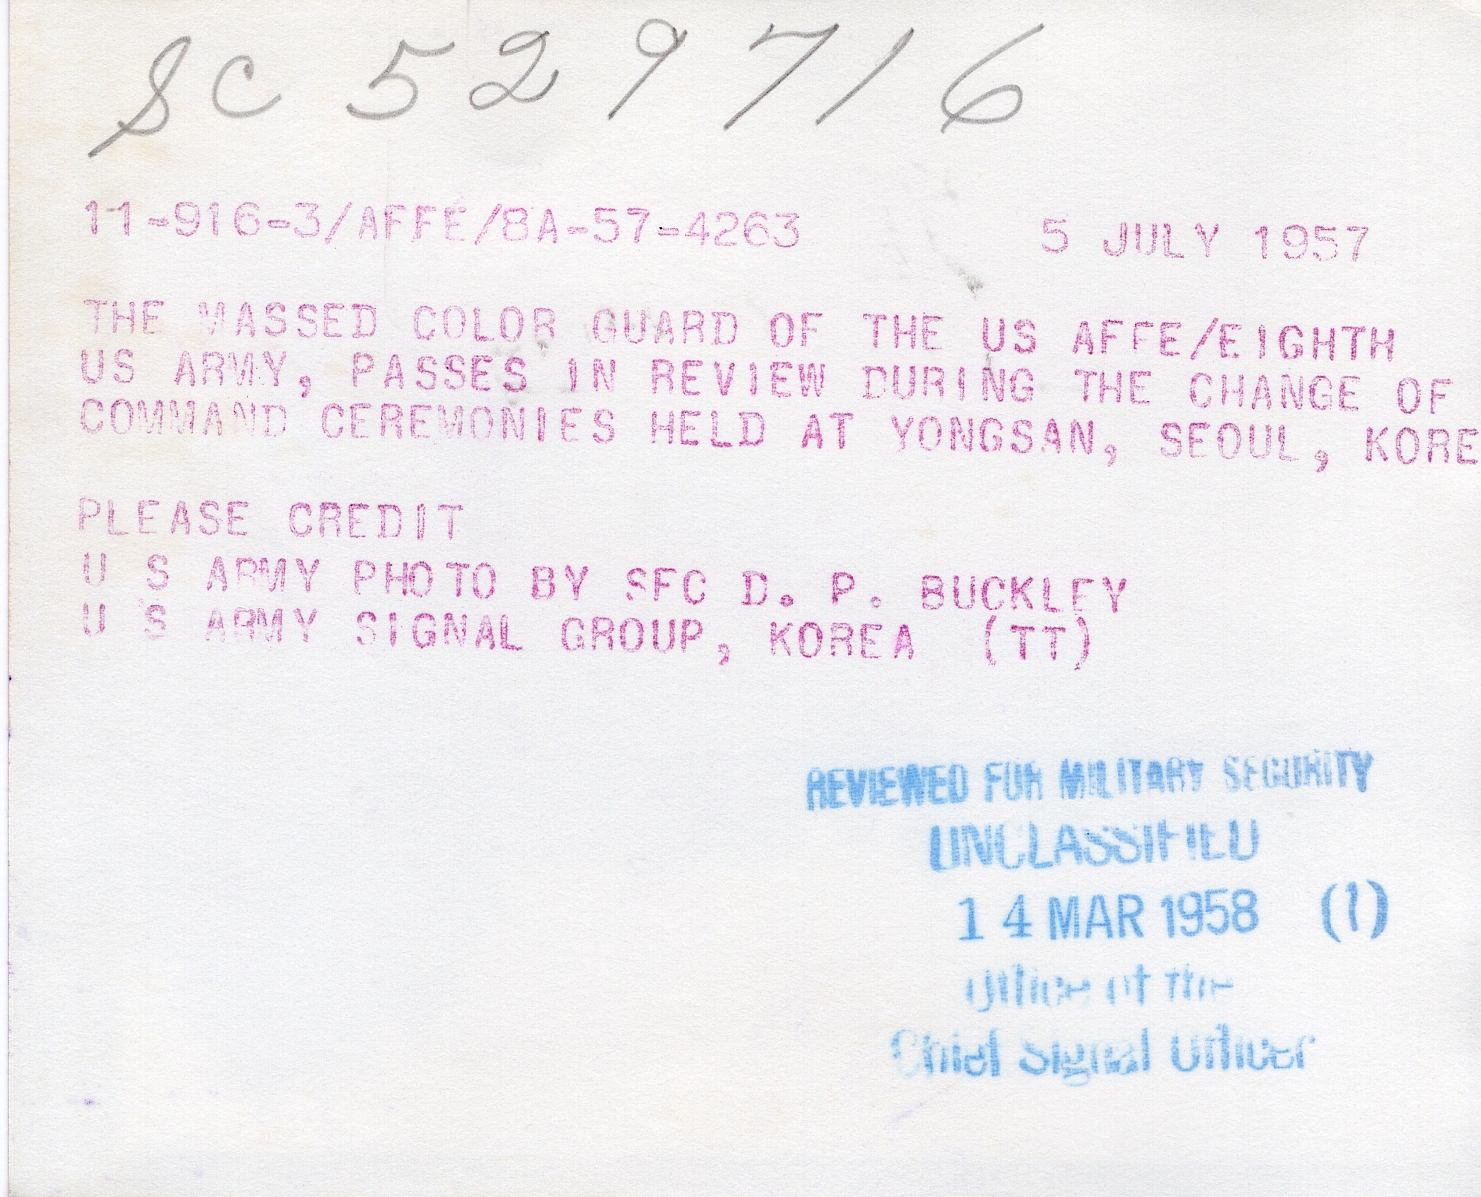 SC 529716
11-916-3/AFFE/8A-57-4263 5 JULY 1957
THE MASSED COLOR GUARD OF THE US AFFE/EIGHTH
US ARMY, PASSES IN REVIEW DURING THE CHANGE OF
COMMAND CEREMONIES HELD AT YONGSAN, SEOUL, KORE
PLEASE CREDIT
U S ARMY PHOTO BY SFC D. P. BUCKLEY
U S ARMY SIGNAL GROUP, KOREA (TT)
REVIEWED FOR MILITARY SECURITY
UNCLASSIFIED
14 MAR 1958 (1)
Office of the
Chief Signal Officer